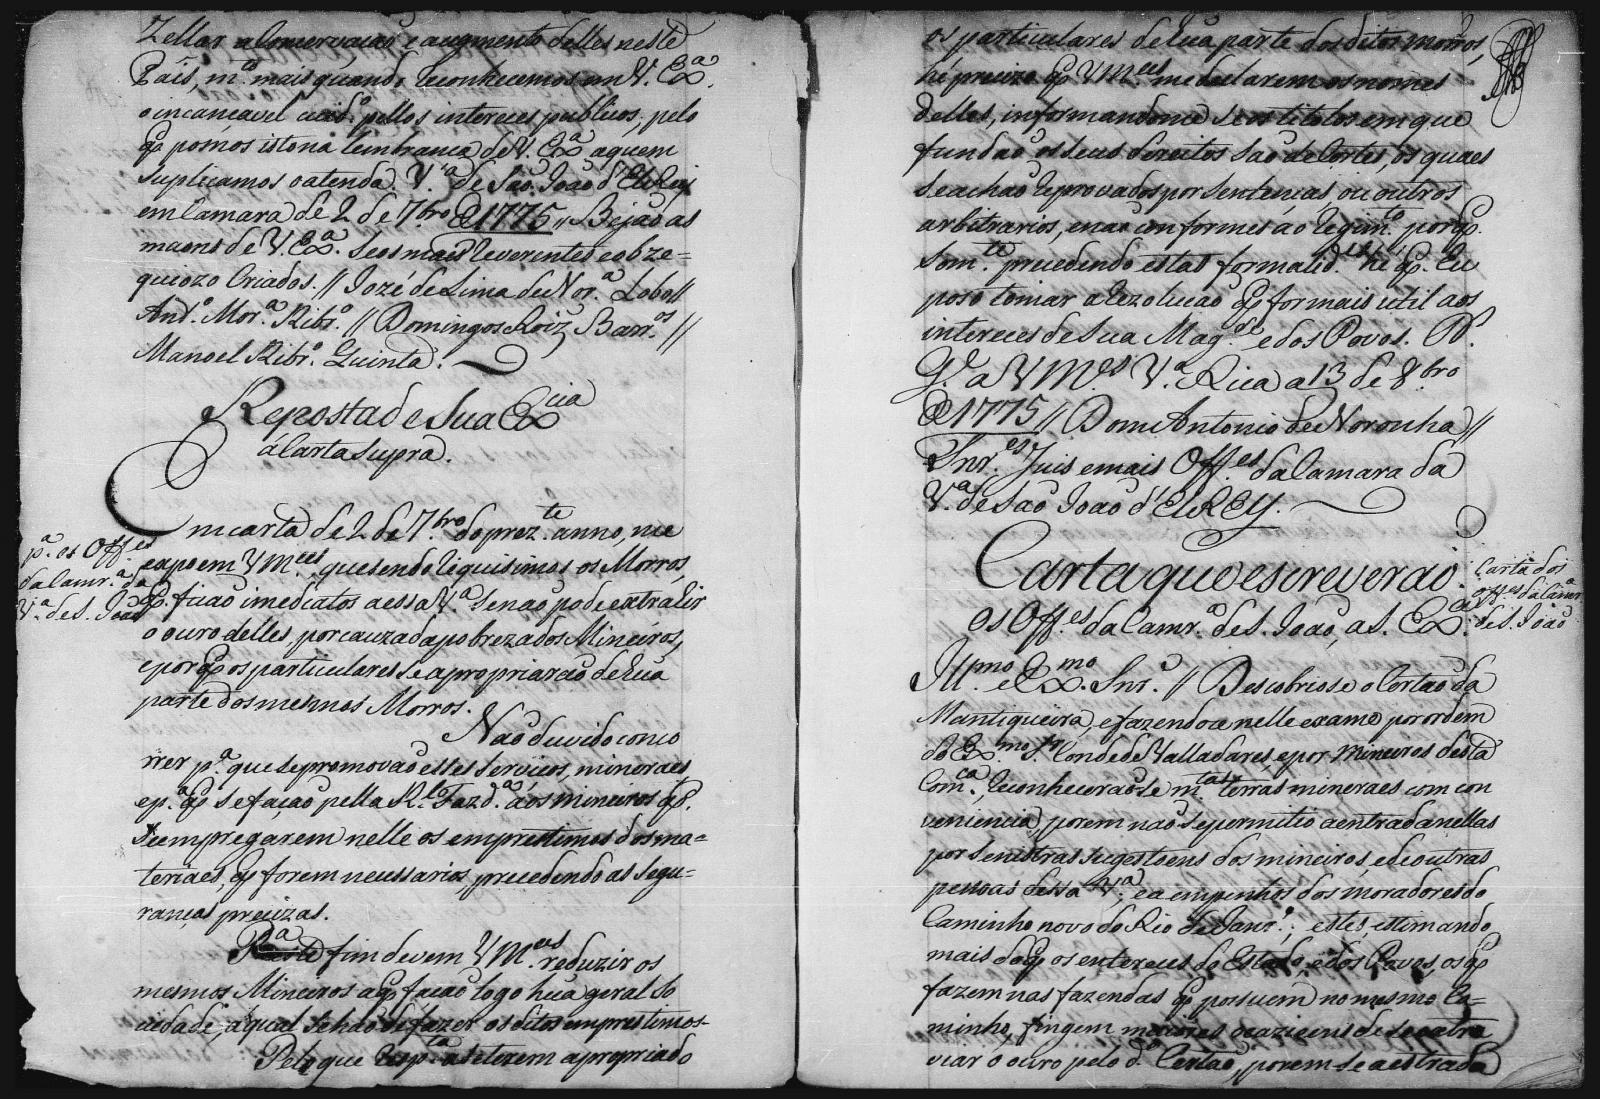 Zellar a Comservacaõ e augmento delles neste
Paîs, m.to mais quando reconhecemos em V. Ex.a
o incançavel cuid.o pellos intereces publicos, pelo
q̃ pomos isto na lembrança de V. Ex.a aquem
suplicamos o atenda. V.a de Saõ Joaõ d'ElRey
em Camara de 2 de 7bro de 1775 // Bejaõ as
maons de V. Ex.a Seos mais reverentes e obze=
quiozo Criados. // Jozé de Lima de Nor.a Lobo //
Ant.o Mor.a Ribr.o // Domingos Roiz Barr.os //
Manoel Ribr.o Quinta.
Reposta de Sua Ex.cia
á Carta supra.
Em carta de 2 de 7bro do prez.te anno, me
p.a os Off.es
da Camr.a da
V.a de S. Joaõ
expoem VM.ces, que sendo riquisimos os Morros
q̃ ficaõ imediatos a essa V.a se naõ pode extrahir
o ouro delles, por cauza da pobreza dos Mineiros,
e porq̃ os particulares se apropriaraõ de hua
parte dos mesmos Morros.
Naõ duvido conco
rrer p.a que se promovaõ estes serviços, mineraes
e p.a q̃ se façaõ pella R.l Fazd.a aos mineiros q̃.
se empregarem nelle os emprestimos dos ma=
teriaes, q̃ forem necessarios, precedendo as segu=
ranças precizas.
P.a este fim devem VM.ces reduzir os
mesmos Mineiros a q̃ façaõ logo hua geral so
ciedade, a qual se ha de fazer os ditos emprestimos-
Pelo que resp.ta a se terem apropriado
os particulares de hua parte dos ditos morros,
hé precizo q̃ VM.ces me declarem os nomes
delles, informandome se os titolos em que
fundaõ os seus Direitos saõ de Cortes, os quaes
se achaõ reprovados por sentenças, ou outros
arbitrarios, e naõ conformes ao regim.to, porq̃.
som.te precedendo estas formalid.es hé q̃. Eu
poso tomar a rezoluçaõ q̃ for mais util aos
intereces de Sua Mag.de e dos Povos. D.s
G.e a VM.ces V.a Rica a 13 de 8bro
de 1775 // Dom Antonio de Noronha //
Snr.es Juis e mais Off.es da Camara da
V.a de Saõ Joaõ d'ElRey.
Carta que escreveraõ
os Off.es da Camr.a de S. Joaõ, a S. Ex.cia
Carta dos
off.es da Camr.a
de S. Joaõ
Ill.mo e Ex.mo Snr. // Descobriose o Certaõ da
Mantiqueira, e fazendoce nelle exame por ordem
do Ex.mo Sr. Conde de Valladares, e por mineiros desta
Com.ca, reconheceraõse m.tas terras mineraes com con
veniencia, porem naõ se permitio a entrada nellas
por senistras sugestoens dos mineiros, e de outras
pessoas dessa V.a, e a empenhos dos moradores do
Caminho novo do Rio de Janr.o; estes, estimando
mais do q̃ os entereces do Estado, e dos Povos, os q̃
fazem nas fazendas q̃ possuem no mesmo Ca=
minho, fingem maiores ocazioens de se extra
viar o ouro pelo d.o Certaõ, porem se a estrada